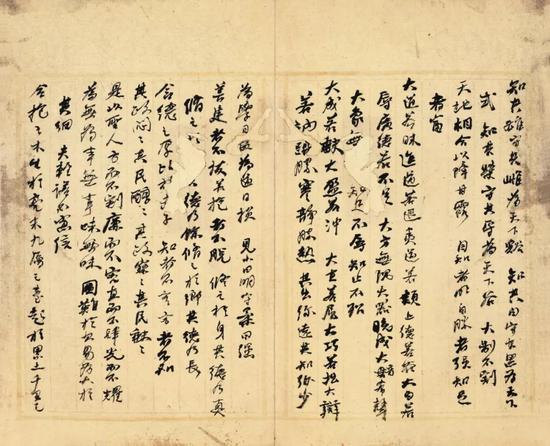 知其雄守其雌為天下谿 知其白守其黑為天下
式 知其榮守其辱為天下谷 大制不割
天地相合以降甘露 自知者明自勝者強知足
者富
大道若昧進道若退夷道若纇上德若谷大白若
辱廣德若不足 大方無隅大器晚成大音希聲
大象無 知足不辱知止不殆
大成若缺大盈若沖大直若屈大巧若拙大辯
若訥躁勝寒靜勝熱 其出彌遠其知彌少
為學日益為道日損 見小曰明守柔曰強
善建者不拔善抱者不脫 修之於身其德乃真
脩之 其德乃餘脩之於鄉其德乃長
含德之厚比於赤子 知者不言言者不知
其政悶々其民醇々其政察々其民缺々
是以聖人方而不割廉而不劌直而不肆光而不燿
為無為事無事味無味 圖難於其易為大於
其細 夫輕諾必寡信
合抱之木生於毫末九層之臺起於累土千里之